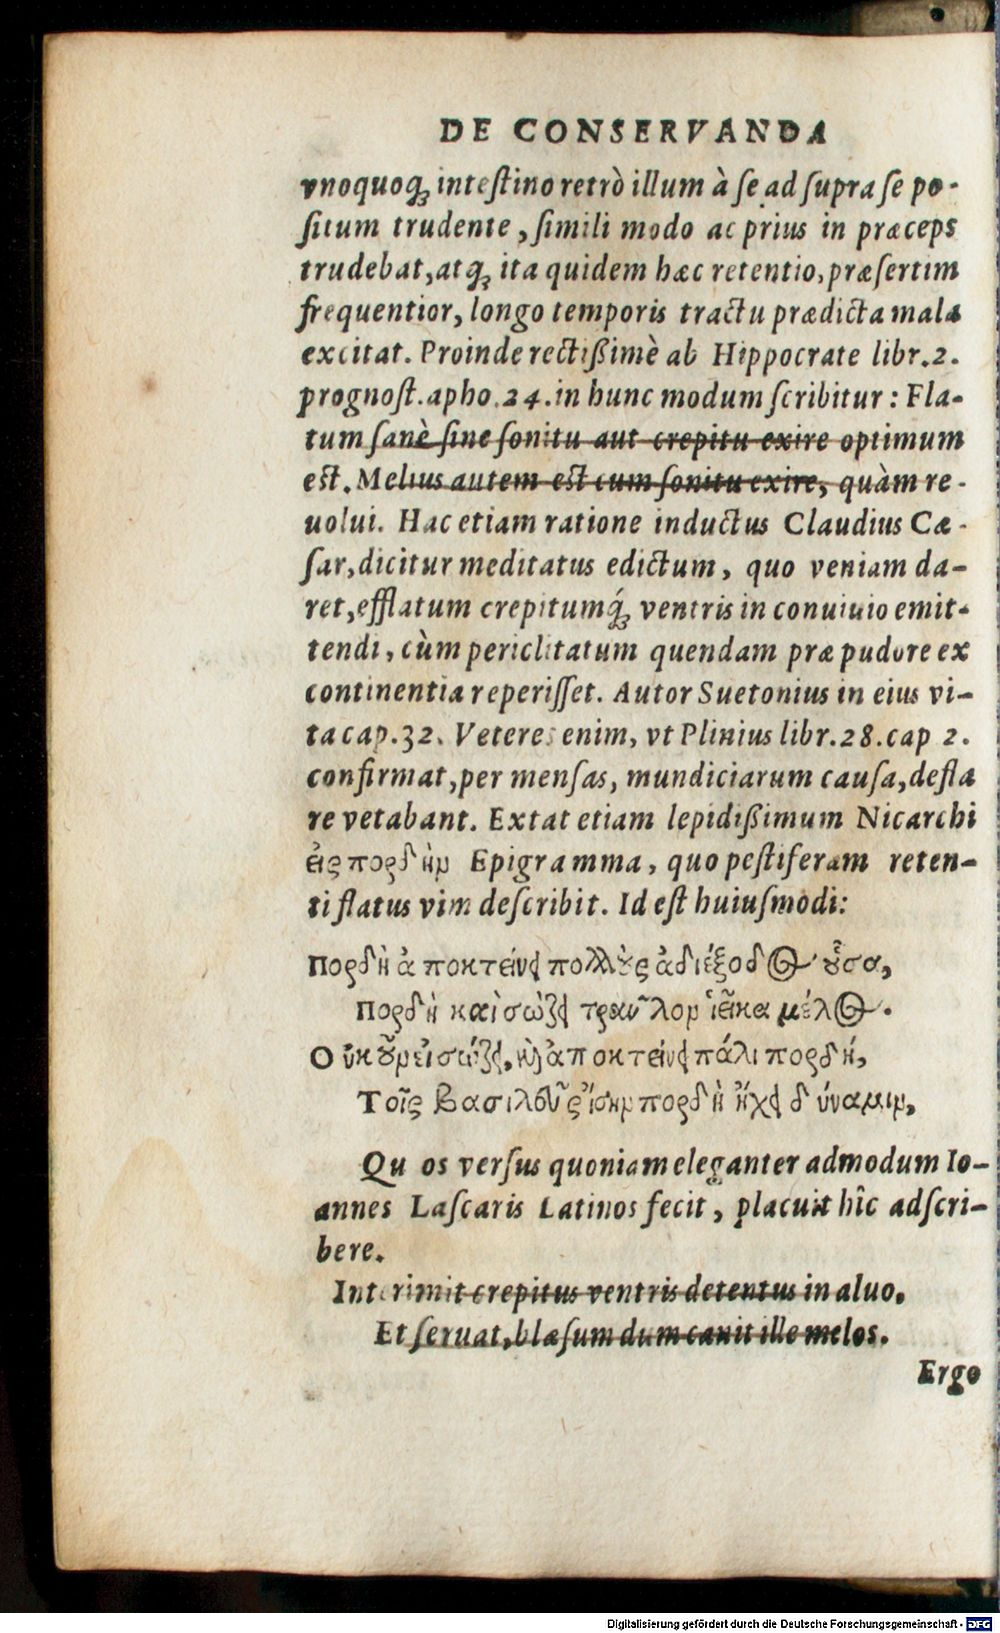 DE CONSERVANDA
vnoquoq; intestino retrò illum à se ad supra se po-
situm trudente, simili modo ac prius in præceps
trudebat, atq; ita quidem hæc retentio, præsertim
frequentior, longo temporis tractu prædicta mala
excitat. Proinde rectißimè ab Hippocrate libr. 2.
prognost. apho. 24. in hunc modum scribitur: Fla-
tum sanè sine sonitu aut crepitu exire optimum
est. Melius autem est cum sonitu exire, quàm re-
uolui. Hac etiam ratione inductus Claudius Cæ-
sar, dicitur meditatus edictum, quo veniam da-
ret, efflatum crepitumq́; ventris in conuiuio emit-
tendi, cùm periclitatum quendam præ pudore ex
continentia reperisset. Autor Suetonius in eius vi-
ta cap. 32. Veteres enim, vt Plinius libr. 28. cap 2.
confirmat, per mensas, mundiciarum causa, defla
re vetabant. Extat etiam lepidißimum Nicarchi
εἰς πορδὴν Epigramma, quo pestiferam reten-
ti flatus vim describit. Id est huiusmodi:
Πορδὴ ἀποκτείνει πολλοὺς ἀδιέξοδος οὖσα,
Πορδὴ καὶ σώζει τραυλὸν ἱεῖσα μέλος.
Οὐκοῦν εἰ σώζει, καὶ ἀποκτείνει πάλι πορδή,
Τοῖς βασιλεῦσιν ἴσην πορδὴ ἔχει δύναμιν,
Qu os versus quoniam eleganter admodum Io-
annes Lascaris Latinos fecit, placuit hîc adscri-
bere.
Interimit crepitus ventris detentus in aluo,
Et seruat, blæsum dum canit ille melos.
Ergo
Digitalisierung gefördert durch die Deutsche Forschungsgemeinschaft - DFG